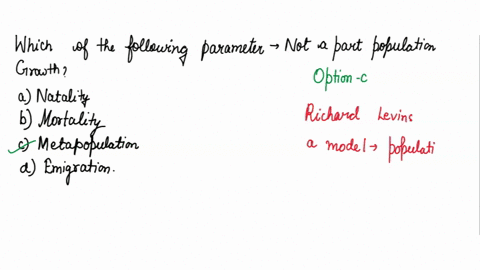 Which of the following parameter → Not a part population
Growth?
Option-c
a) Natality
b) Mortality
c) Metapopulation
d) Emigration.
Richard Levins
a model → populati